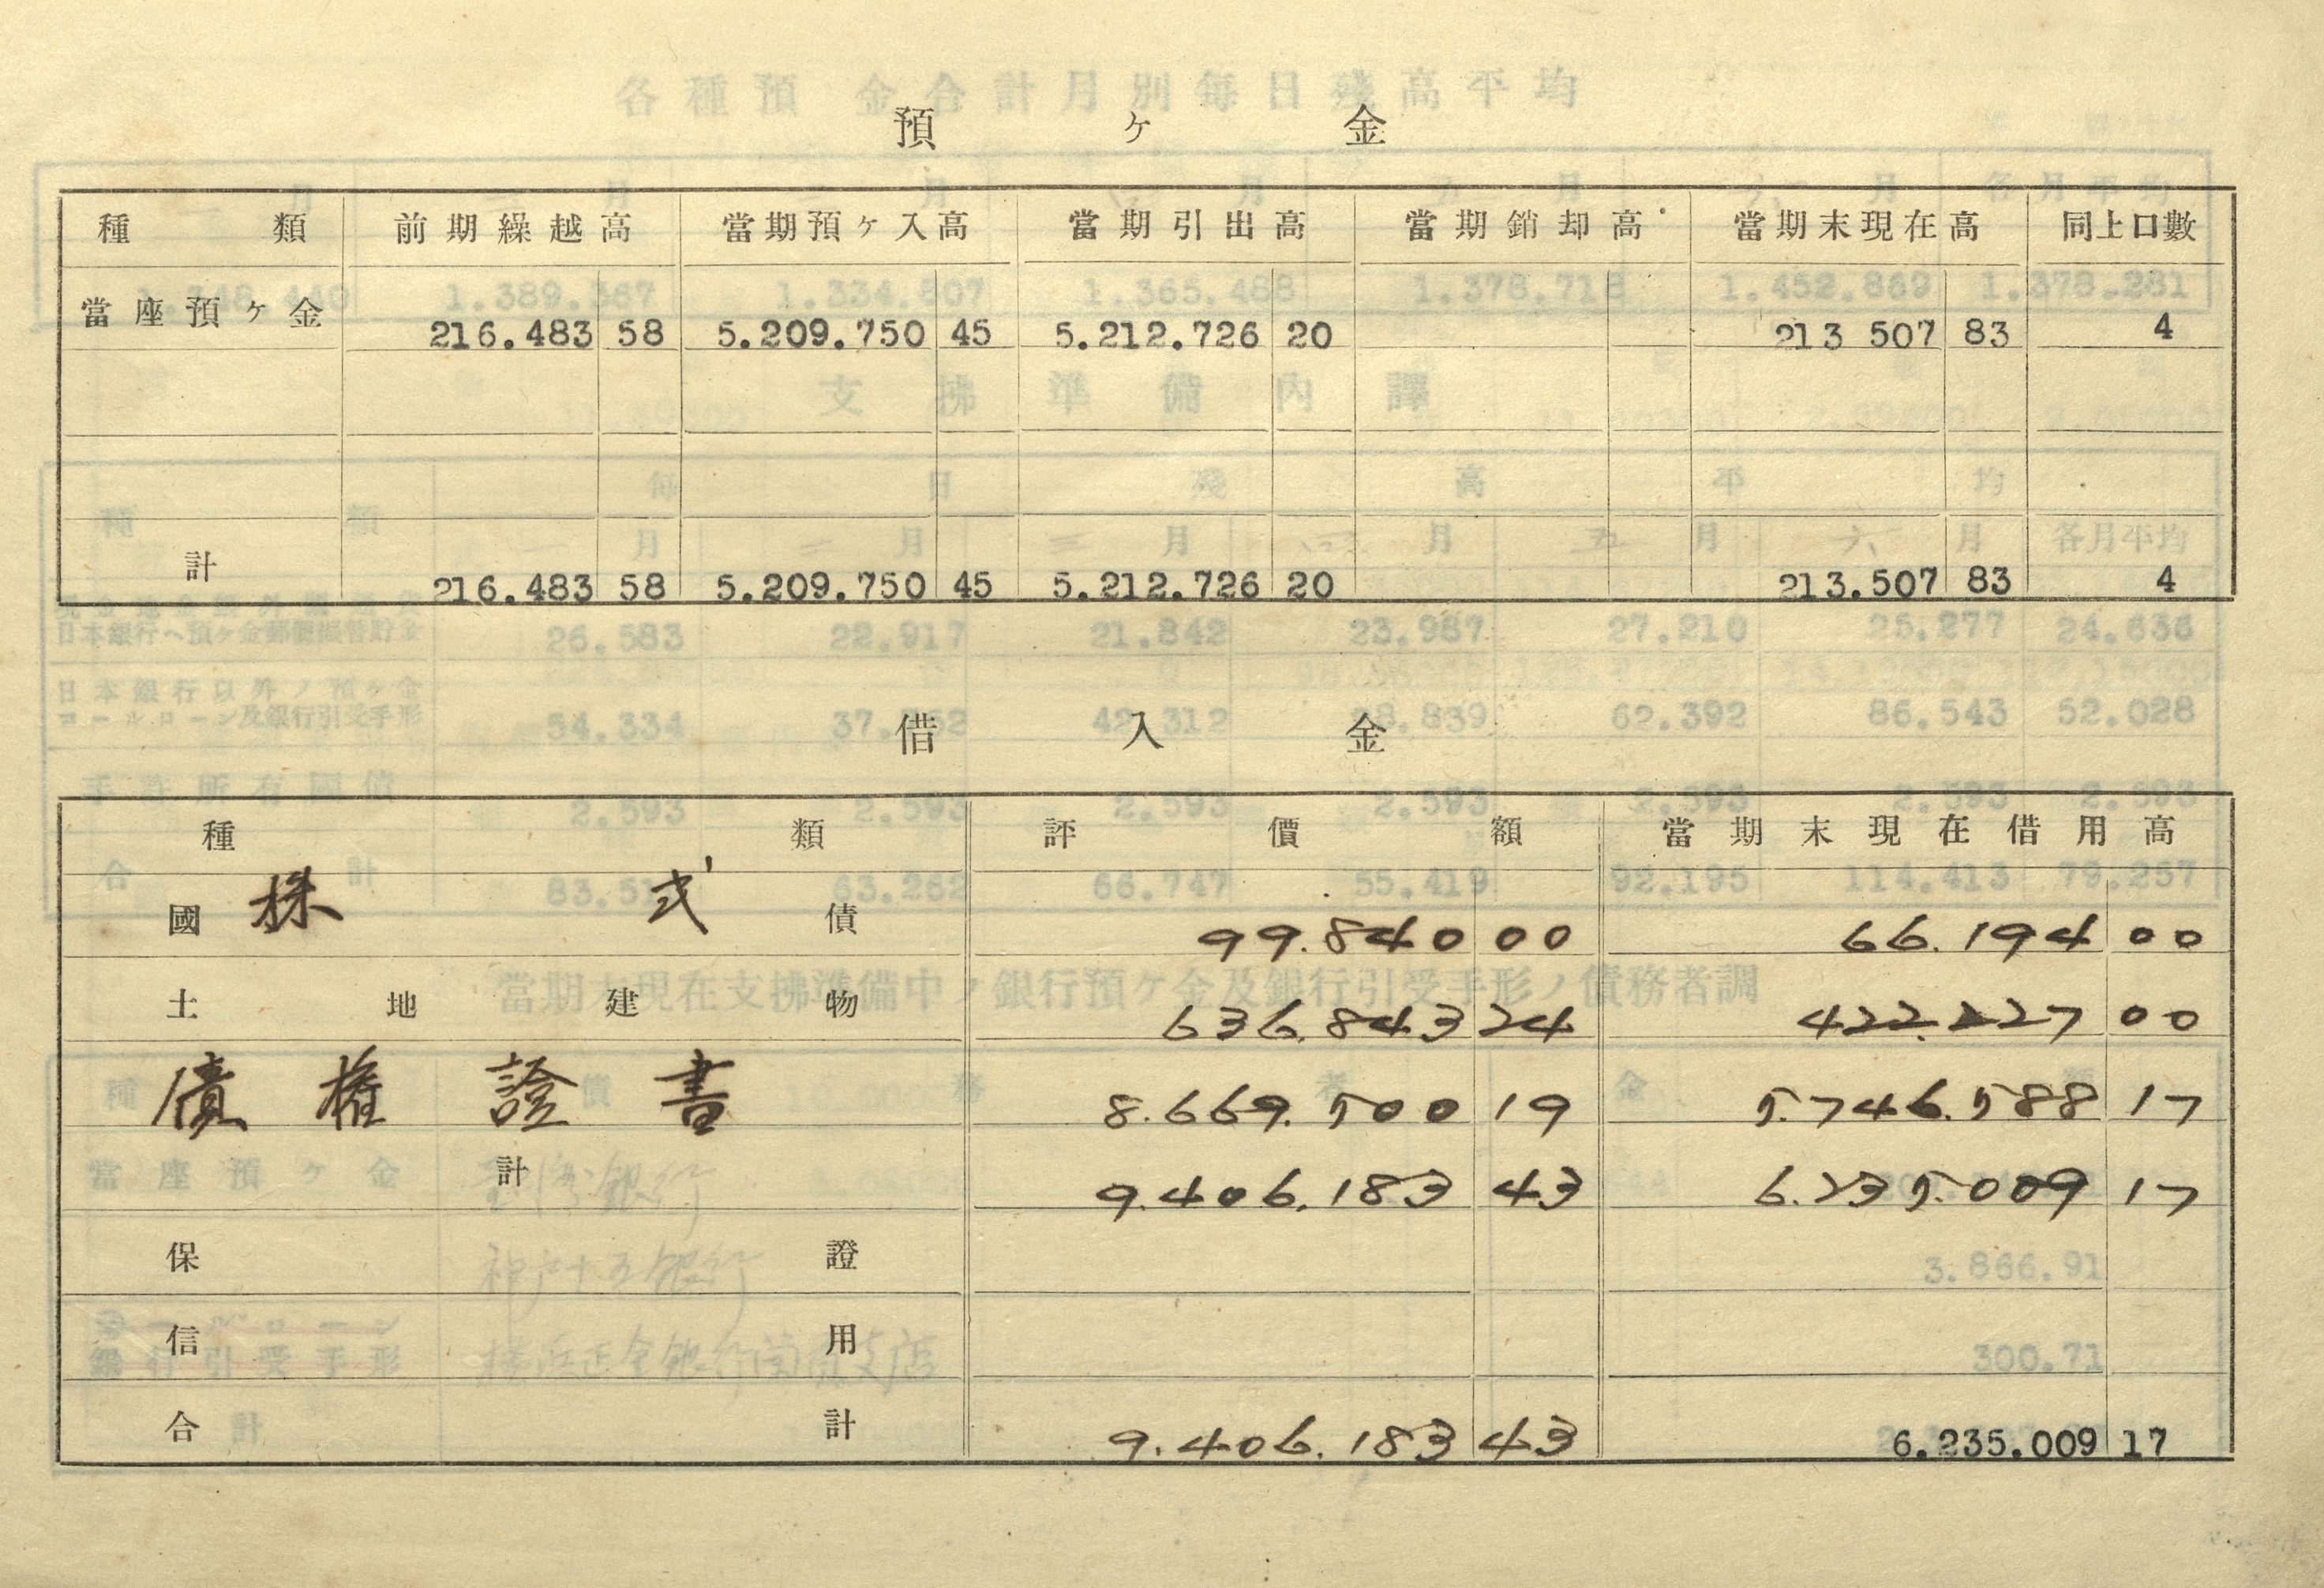 預ヶ金
種類 前期繰越高 當期預ヶ入高 當期引出高 當期銷却高 當期末現在高 同上口數
當座預ヶ金 216.483 58 5.209.750 45 5.212.726 20 213 507 83 4
計 216.483 58 5.209.750 45 5.212.726 20 213.507 83 4
借入金
種類 評價額 當期末現在借用高
國債 株式 99.840 00 66.194 00
土地建物 636.843 24 422.227 00
債權證書 8.669.500 19 5.746.588 17
計 9.406.183 43 6.235.009 17
保證
信用
合計 9.406.183 43 6.235.009 17